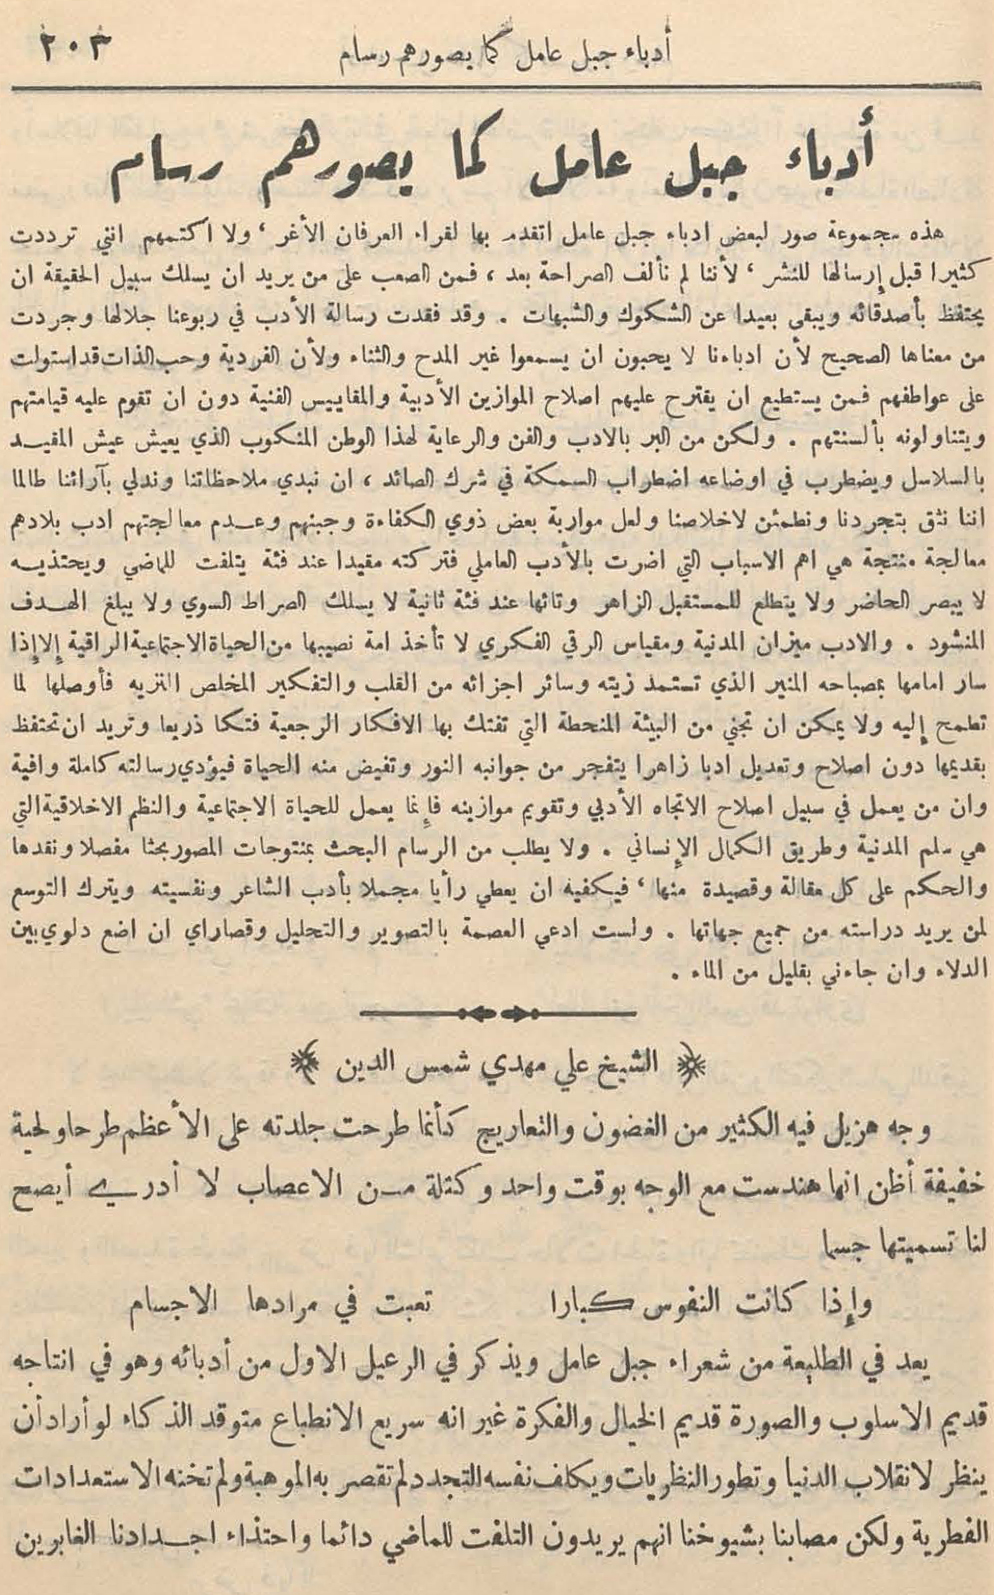 أدباء جبل عامل كما يصورهم رسام ٢٠٣
أدباء جبل عامل كما يصورهم رسام
هذه مجموعة صور لبعض ادباء جبل عامل اتقدم بها لقراء العرفان الأغر ، ولا اكتمهم انني ترددت
كثيرا قبل إرسالها للنشر ، لأننا لم نألف الصراحة بعد ، فمن الصعب على من يريد ان يسلك سبيل الحقيقة ان
يحتفظ بأصدقائه ويبقى بعيدا عن الشكوك والشبهات . وقد فقدت رسالة الأدب في ربوعنا جلالها وجردت
من معناها الصحيح لأن ادباءنا لا يحبون ان يسمعوا غير المدح والثناء ولأن الفردية وحب الذات قد استولت
على عواطفهم فمن يستطيع ان يقترح عليهم اصلاح الموازين الأدبية والمقاييس الفنية دون ان تقوم عليه قيامتهم
ويتناولونه بألسنتهم . ولكن من البر بالادب والفن والرعاية لهذا الوطن المنكوب الذي يعيش عيش المقيد
بالسلاسل ويضطرب في اوضاعه اضطراب السمكة في شرك الصائد ، ان نبدي ملاحظاتنا وندلي بآرائنا طالما
اننا نثق بتجردنا ونطمئن لاخلاصنا ولعل مواربة بعض ذوي الكفاءة وجبنهم وعدم معالجتهم ادب بلادهم
معالجة منتجة هي اهم الاسباب التي اضرت بالأدب العاملي فتركته مقيدا عند فئة يتلفت للماضي ويحتذيه
لا يبصر الحاضر ولا يتطلع للمستقبل الزاهر وتائها عند فئة ثانية لا يسلك الصراط السوي ولا يبلغ الهدف
المنشود . والادب ميزان المدنية ومقياس الرقي الفكري لا تأخذ امة نصيبها من الحياة الاجتماعية الراقية إلا إذا
سار امامها بمصباحه المنير الذي تستمد زيته وسائر اجزائه من القلب والتفكير المخلص النزيه فأوصلها لما
تطمح إليه ولا يمكن ان تجني من البيئة المنحطة التي تفتك بها الافكار الرجعية فتكا ذريعا وتريد ان تحتفظ
بقديمها دون اصلاح وتعديل ادبا زاهرا يتفجر من جوانبه النور وتفيض منه الحياة فيؤدي رسالته كاملة وافية
وان من يعمل في سبيل اصلاح الاتجاه الأدبي وتقويم موازينه فإنما يعمل للحياة الاجتماعية والنظم الاخلاقية التي
هي سلم المدنية وطريق الكمال الإنساني . ولا يطلب من الرسام البحث بمنتوجات المصور بحثا مفصلا ونقدها
والحكم على كل مقالة وقصيدة منها ، فيكفيه ان يعطي رأيا مجملا بأدب الشاعر ونفسيته ويترك التوسع
لمن يريد دراسته من جميع جهاتها . ولست ادعي العصمة بالتصوير والتحليل وقصاراي ان اضع دلوي بين
الدلاء وان جاءني بقليل من الماء .
الشيخ علي مهدي شمس الدين
وجه هزيل فيه الكثير من الغضون والتعاريج كأنما طرحت جلدته على الأعظم طرحا ولحية
خفيفة أظن انها هندست مع الوجه بوقت واحد وكتلة من الاعصاب لا أدري أيصح
لنا تسميتها جسما
وإذا كانت النفوس كبارا تعبت في مرادها الاجسام
يعد في الطليعة من شعراء جبل عامل ويذكر في الرعيل الاول من أدبائه وهو في انتاجه
قديم الاسلوب والصورة قديم الخيال والفكرة غير انه سريع الانطباع متوقد الذكاء لو أراد أن
ينظر لانقلاب الدنيا وتطور النظريات ويكلف نفسه التجدد لم تقصر به الموهبة ولم تخنه الاستعدادات
الفطرية ولكن مصابنا بشيوخنا انهم يريدون التلفت للماضي دائما واحتذاء اجدادنا الغابرين